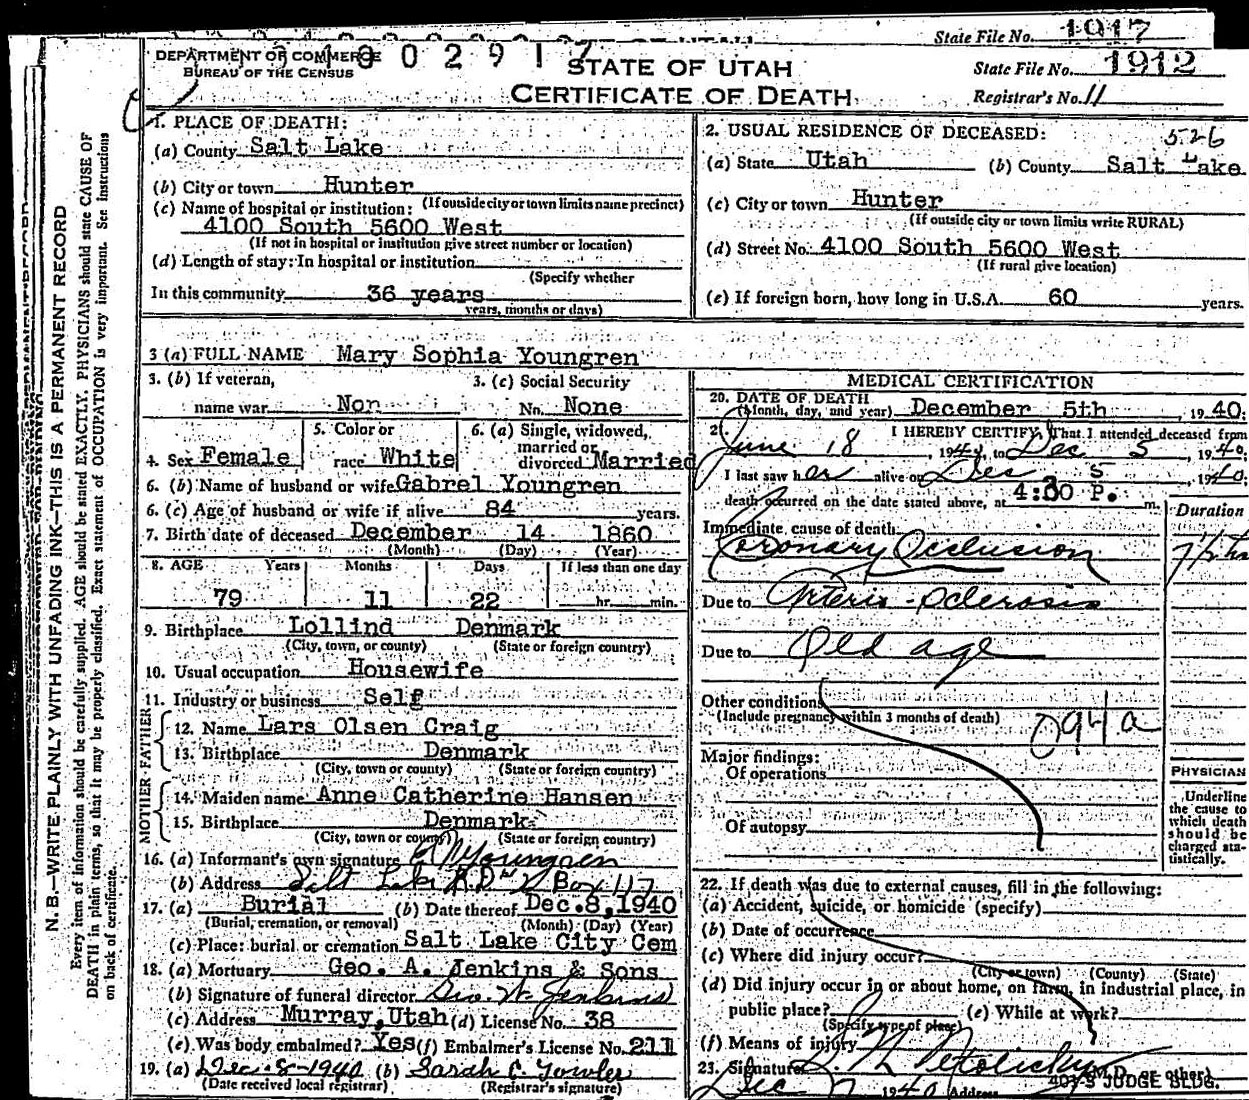 State File No. 1917
DEPARTMENT OF COMMERCE
BUREAU OF THE CENSUS
4 0 0 2 9 1 7
STATE OF UTAH
State File No. 1912
CERTIFICATE OF DEATH
Registrar's No. 11
1. PLACE OF DEATH:
(a) County Salt Lake
(b) City or town Hunter
(If outside city or town limits name precinct)
(c) Name of hospital or institution:
4100 South 5600 West
(If not in hospital or institution give street number or location)
(d) Length of stay: In hospital or institution
(Specify whether
In this community 36 years
years, months or days)
2. USUAL RESIDENCE OF DECEASED: 526
(a) State Utah (b) County Salt Lake
(c) City or town Hunter
(If outside city or town limits write RURAL)
(d) Street No. 4100 South 5600 West
(If rural give location)
(e) If foreign born, how long in U.S.A. 60 years.
3 (a) FULL NAME Mary Sophia Youngren
3. (b) If veteran, 3. (c) Social Security
name war Non No. None
4. Sex Female 5. Color or race White 6. (a) Single, widowed, married or divorced Married
6. (b) Name of husband or wife Gabrel Youngren
6. (c) Age of husband or wife if alive 84 years.
7. Birth date of deceased December 14 1860
(Month) (Day) (Year)
8. AGE Years Months Days If less than one day
79 11 22 hr. min.
9. Birthplace Lollind Denmark
(City, town, or county) (State or foreign country)
10. Usual occupation Housewife
11. Industry or business Self
FATHER
12. Name Lars Olsen Craig
13. Birthplace Denmark
(City, town or county) (State or foreign country)
MOTHER
14. Maiden name Anne Catherine Hansen
15. Birthplace Denmark
(City, town or county) (State or foreign country)
16. (a) Informant's own signature Youngren
(b) Address Salt Lake R.D. Box 117
17. (a) Burial (b) Date thereof Dec. 8, 1940
(Burial, cremation, or removal) (Month) (Day) (Year)
(c) Place: burial or cremation Salt Lake City Cem
18. (a) Mortuary Geo. A. Jenkins & Sons
(b) Signature of funeral director Geo. W. Jenkins
(c) Address Murray, Utah (d) License No. 38
(e) Was body embalmed? Yes (f) Embalmer's License No. 211
19. (a) Dec-8-1940 (b) Sarah C. Towler
(Date received local registrar) (Registrar's signature)
MEDICAL CERTIFICATION
20. DATE OF DEATH
(Month, day, and year) December 5th, 1940;
2 I HEREBY CERTIFY, That I attended deceased from
June 18, 1940, to Dec 5, 1940;
I last saw her alive on Dec 5, 1940;
death occurred on the date stated above, at 4:30 P. m.
Duration
Immediate cause of death
Coronary Occlusion 7 1/2 hrs
Due to Arterio-Sclerosis
Due to Old age
Other conditions
(Include pregnancy within 3 months of death)
094a
Major findings:
Of operations
Of autopsy
PHYSICIAN
Underline
the cause to
which death
should be
charged sta-
tistically.
22. If death was due to external causes, fill in the following:
(a) Accident, suicide, or homicide (specify)
(b) Date of occurrence
(c) Where did injury occur?
(City or town) (County) (State)
(d) Did injury occur in or about home, on farm, in industrial place, in
public place? (e) While at work?
(Specify type of place)
(f) Means of injury
23. Signature (M.D. or other)
Dec 1940 Address JUDGE BLDG.
N. B.—WRITE PLAINLY WITH UNFADING INK—THIS IS A PERMANENT RECORD
Every item of information should be carefully supplied. AGE should be stated EXACTLY. PHYSICIANS should state CAUSE OF
DEATH in plain terms, so that it may be properly classified. Exact statement of OCCUPATION is very important. See instructions
on back of certificate.